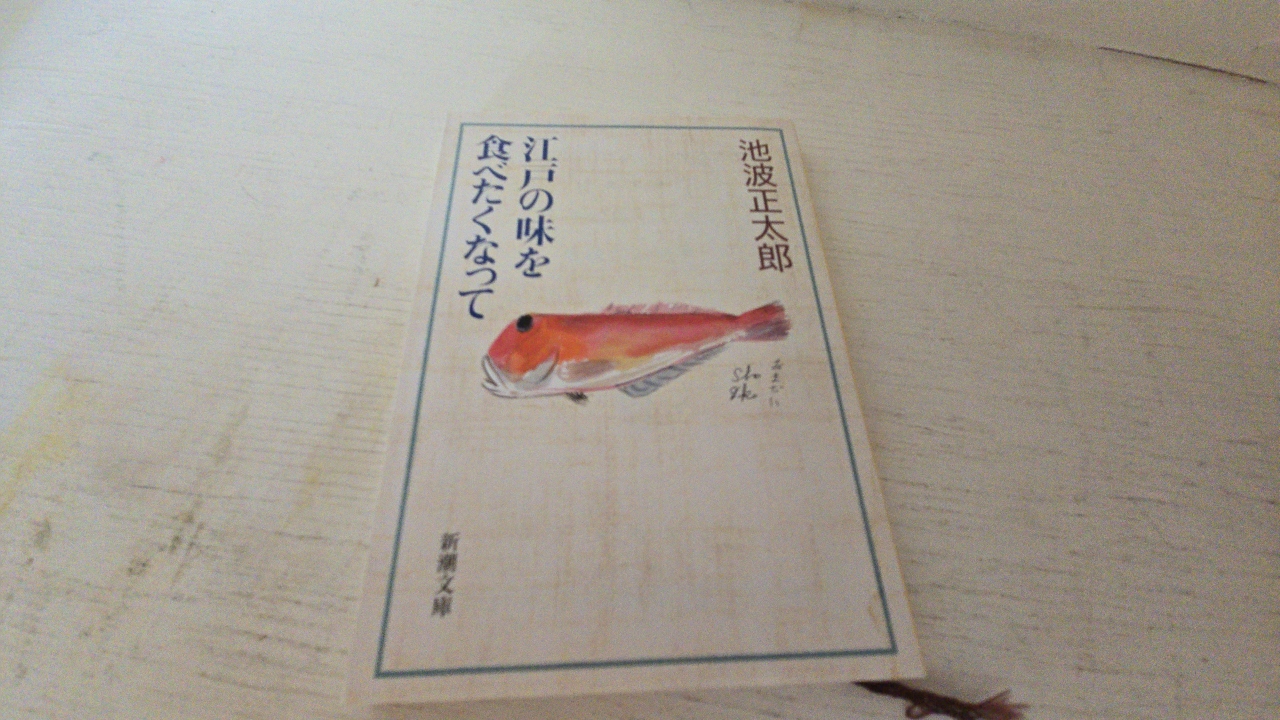 池波正太郎
江戸の味を
食べたくなって
あまだい
Sho
新潮文庫